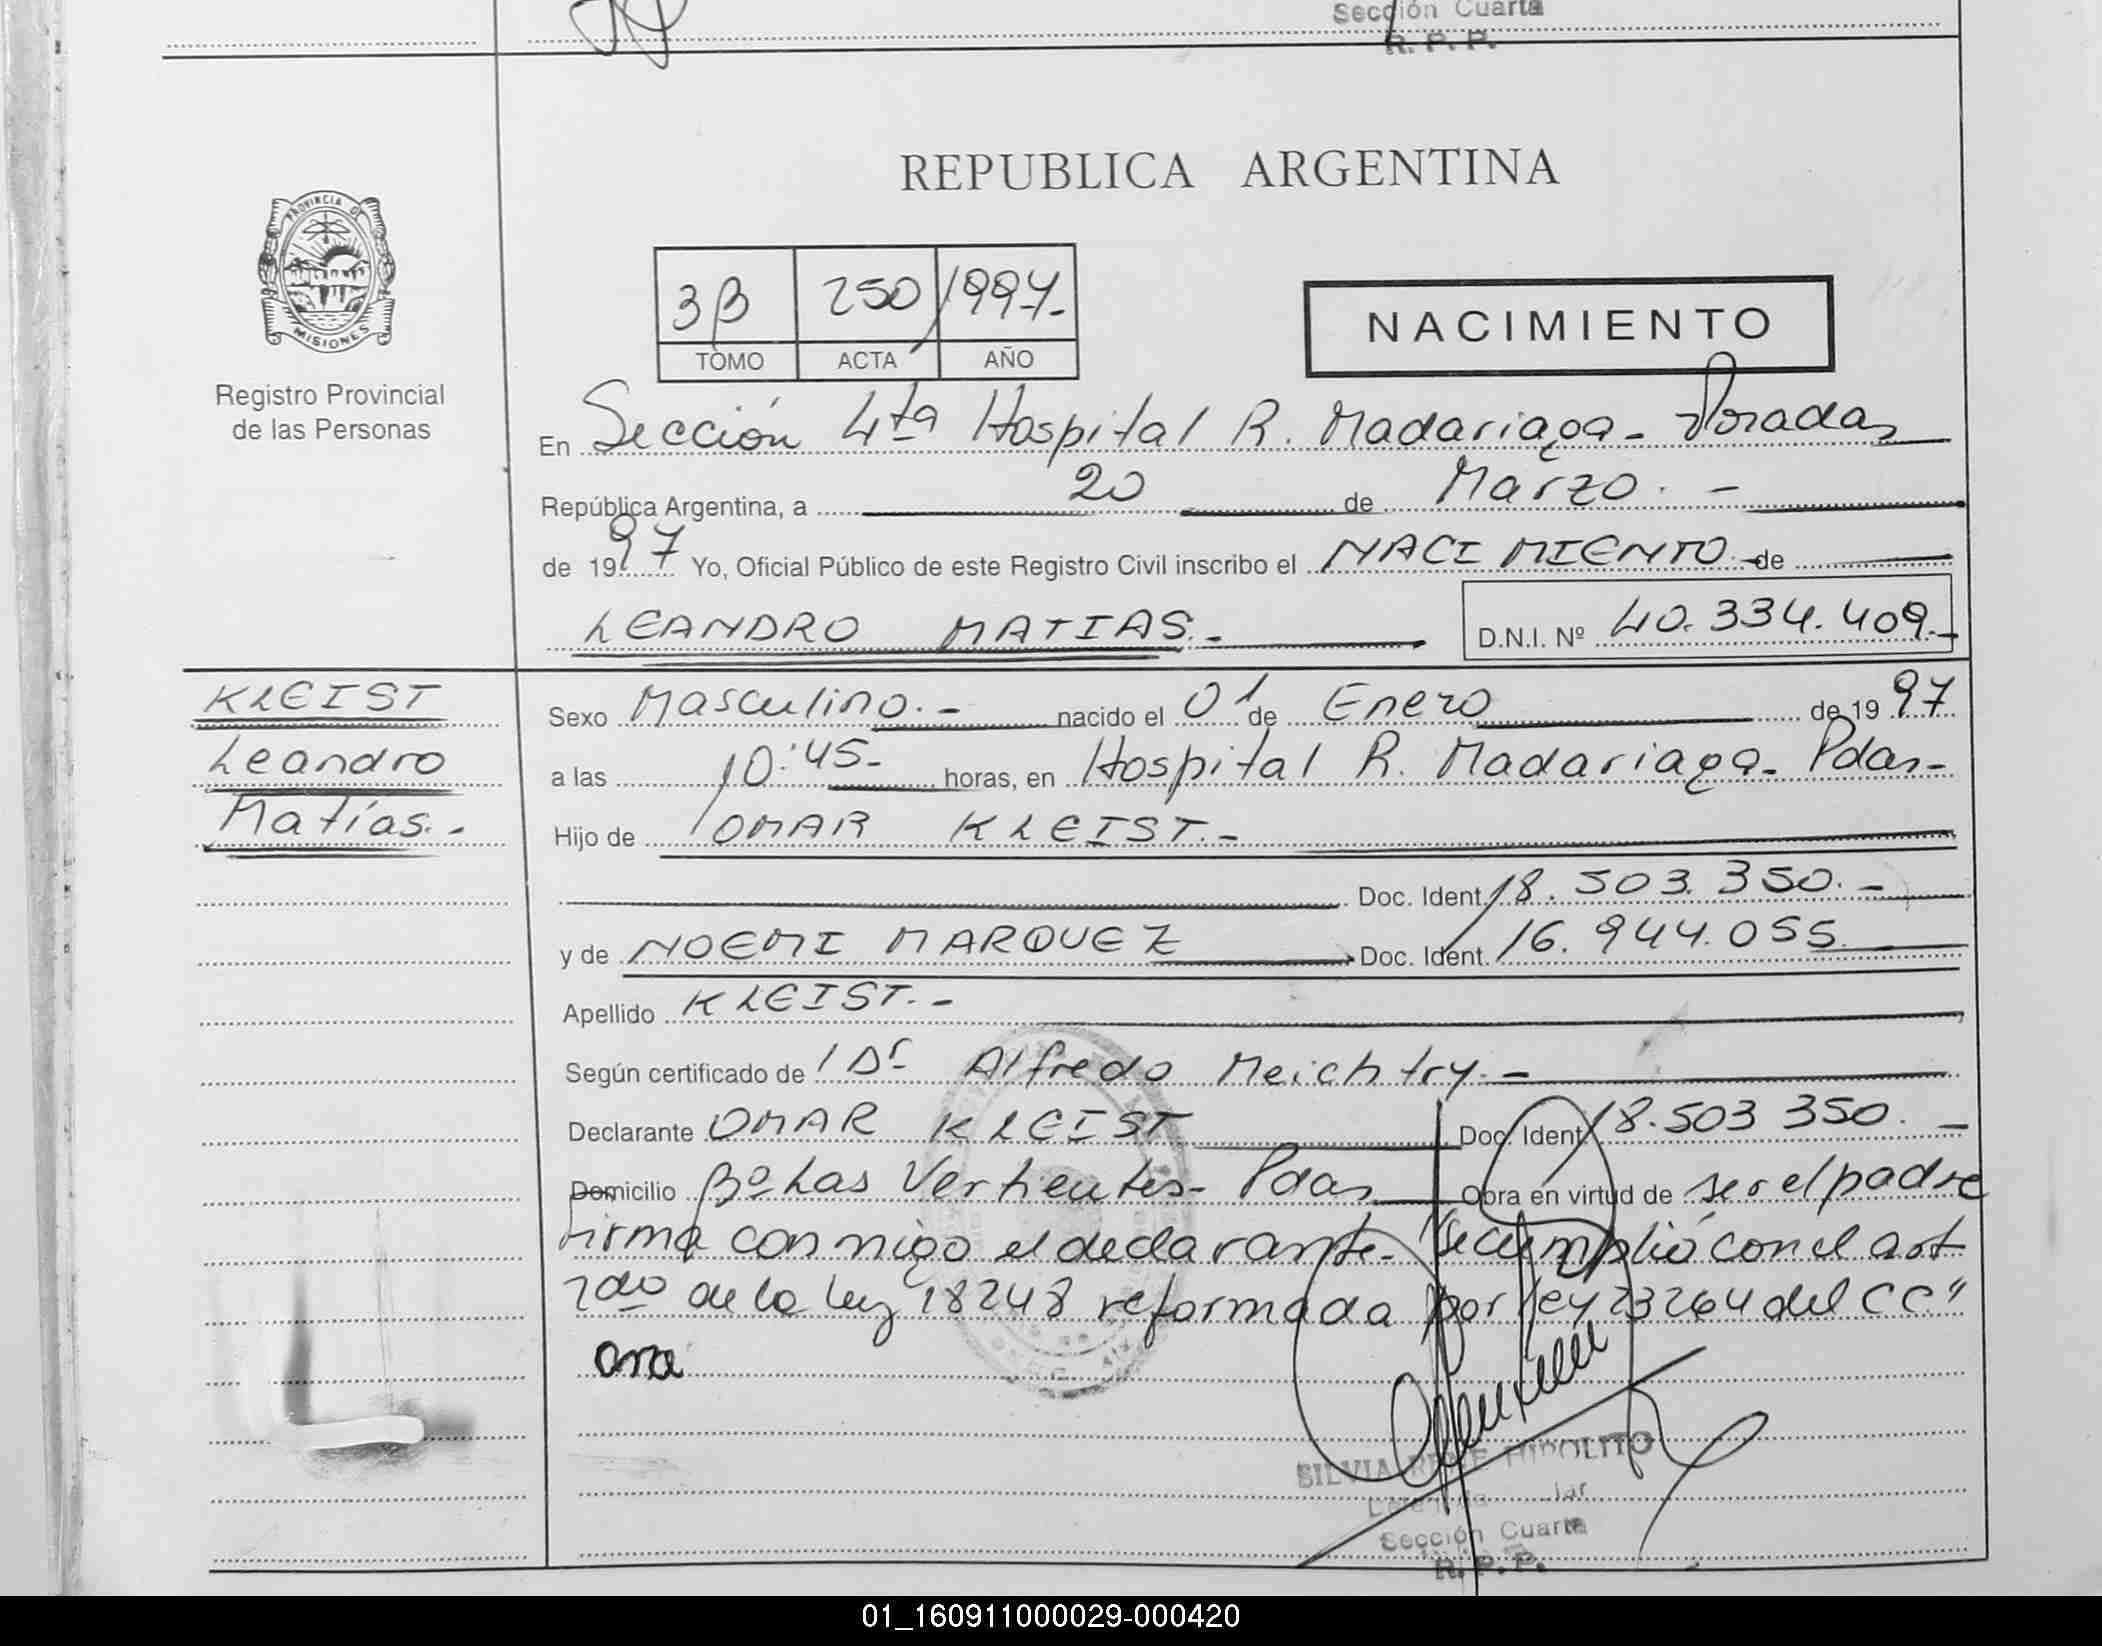 Sección Cuarta
R. P. P.
REPUBLICA ARGENTINA
PROVINCIA DE
MISIONES
Registro Provincial
de las Personas
3B 250 1997.-
TOMO ACTA AÑO
NACIMIENTO
En Sección 4ta Hospital R. Madariaga - Posadas
República Argentina, a 20 de Marzo. -
de 1997 Yo, Oficial Público de este Registro Civil inscribo el NACIMIENTO - de
LEANDRO MATIAS. - D.N.I. Nº 40.334.409.-
KLEIST
Leandro
Matías. -
Sexo Masculino. - nacido el 01 de Enero de 1997
a las 10:45.- horas, en Hospital R. Madariaga - Pdas -
Hijo de OMAR KLEIST. -
Doc. Ident. 18.503.350. -
y de NOEMI MARQUEZ Doc. Ident. 16.944.055.
Apellido KLEIST. -
Según certificado de / Dr Alfredo Meichtry. -
Declarante OMAR KLEIST Doc. Ident. 18.503 350. -
Domicilio Bº Las Vertientes - Pdas Obra en virtud de ser el padre
Firma conmigo el declarante - "Se cumplió con el art
2do de la ley 18248 reformada por ley 23264 del CC"
SILVIA RENE HIPOLITO
Sección Cuarta
R. P. P.
01_160911000029-000420